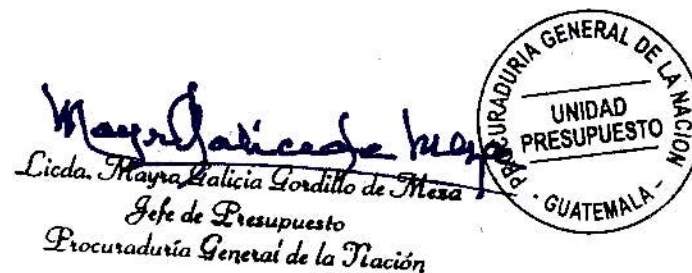 Mayra Galicia de Meza
Licda. Mayra Galicia Gordillo de Meza
Jefe de Presupuesto
Procuraduría General de la Nación
PROCURADURIA GENERAL DE LA NACION
UNIDAD
PRESUPUESTO
- GUATEMALA -